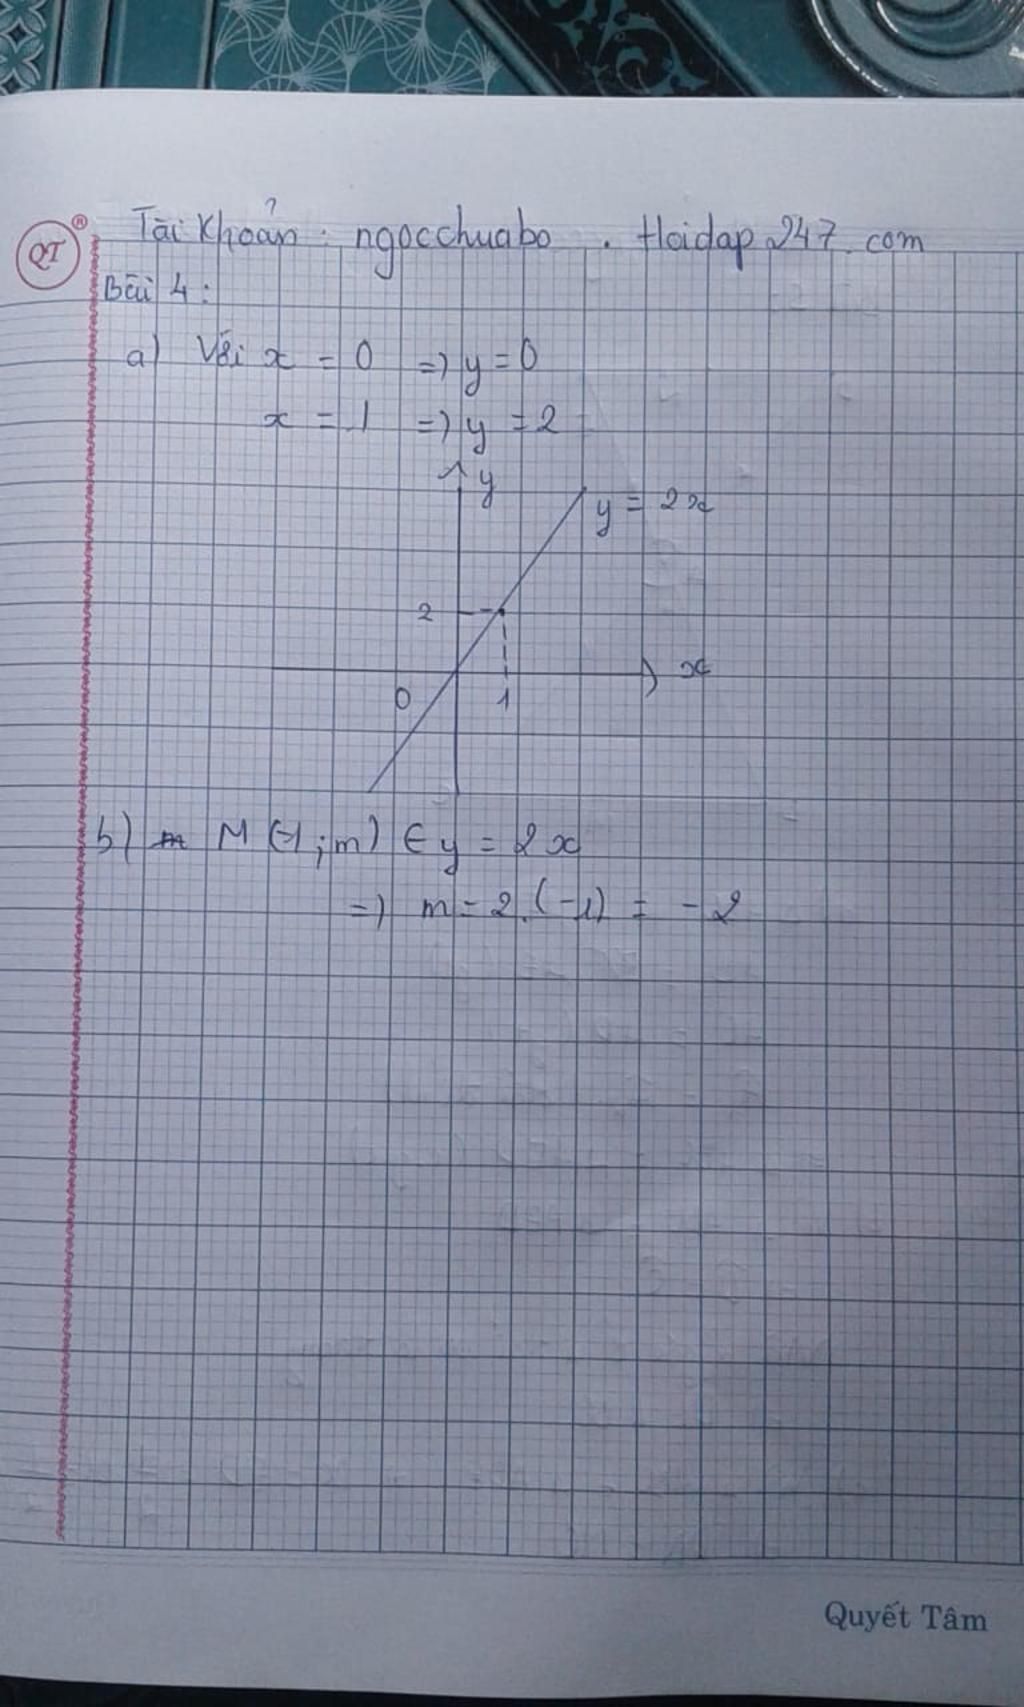 QT ®
Tài khoản : ngocchuabo . Hoidap 247. com
Bài 4 :
a) Với x = 0 => y = 0
x = 1 => y = 2
y
y = 2x
2
x
0 1
b) M (-1 ; m) ∈ y = 2x
=> m = 2. (-1) = -2
Quyết Tâm